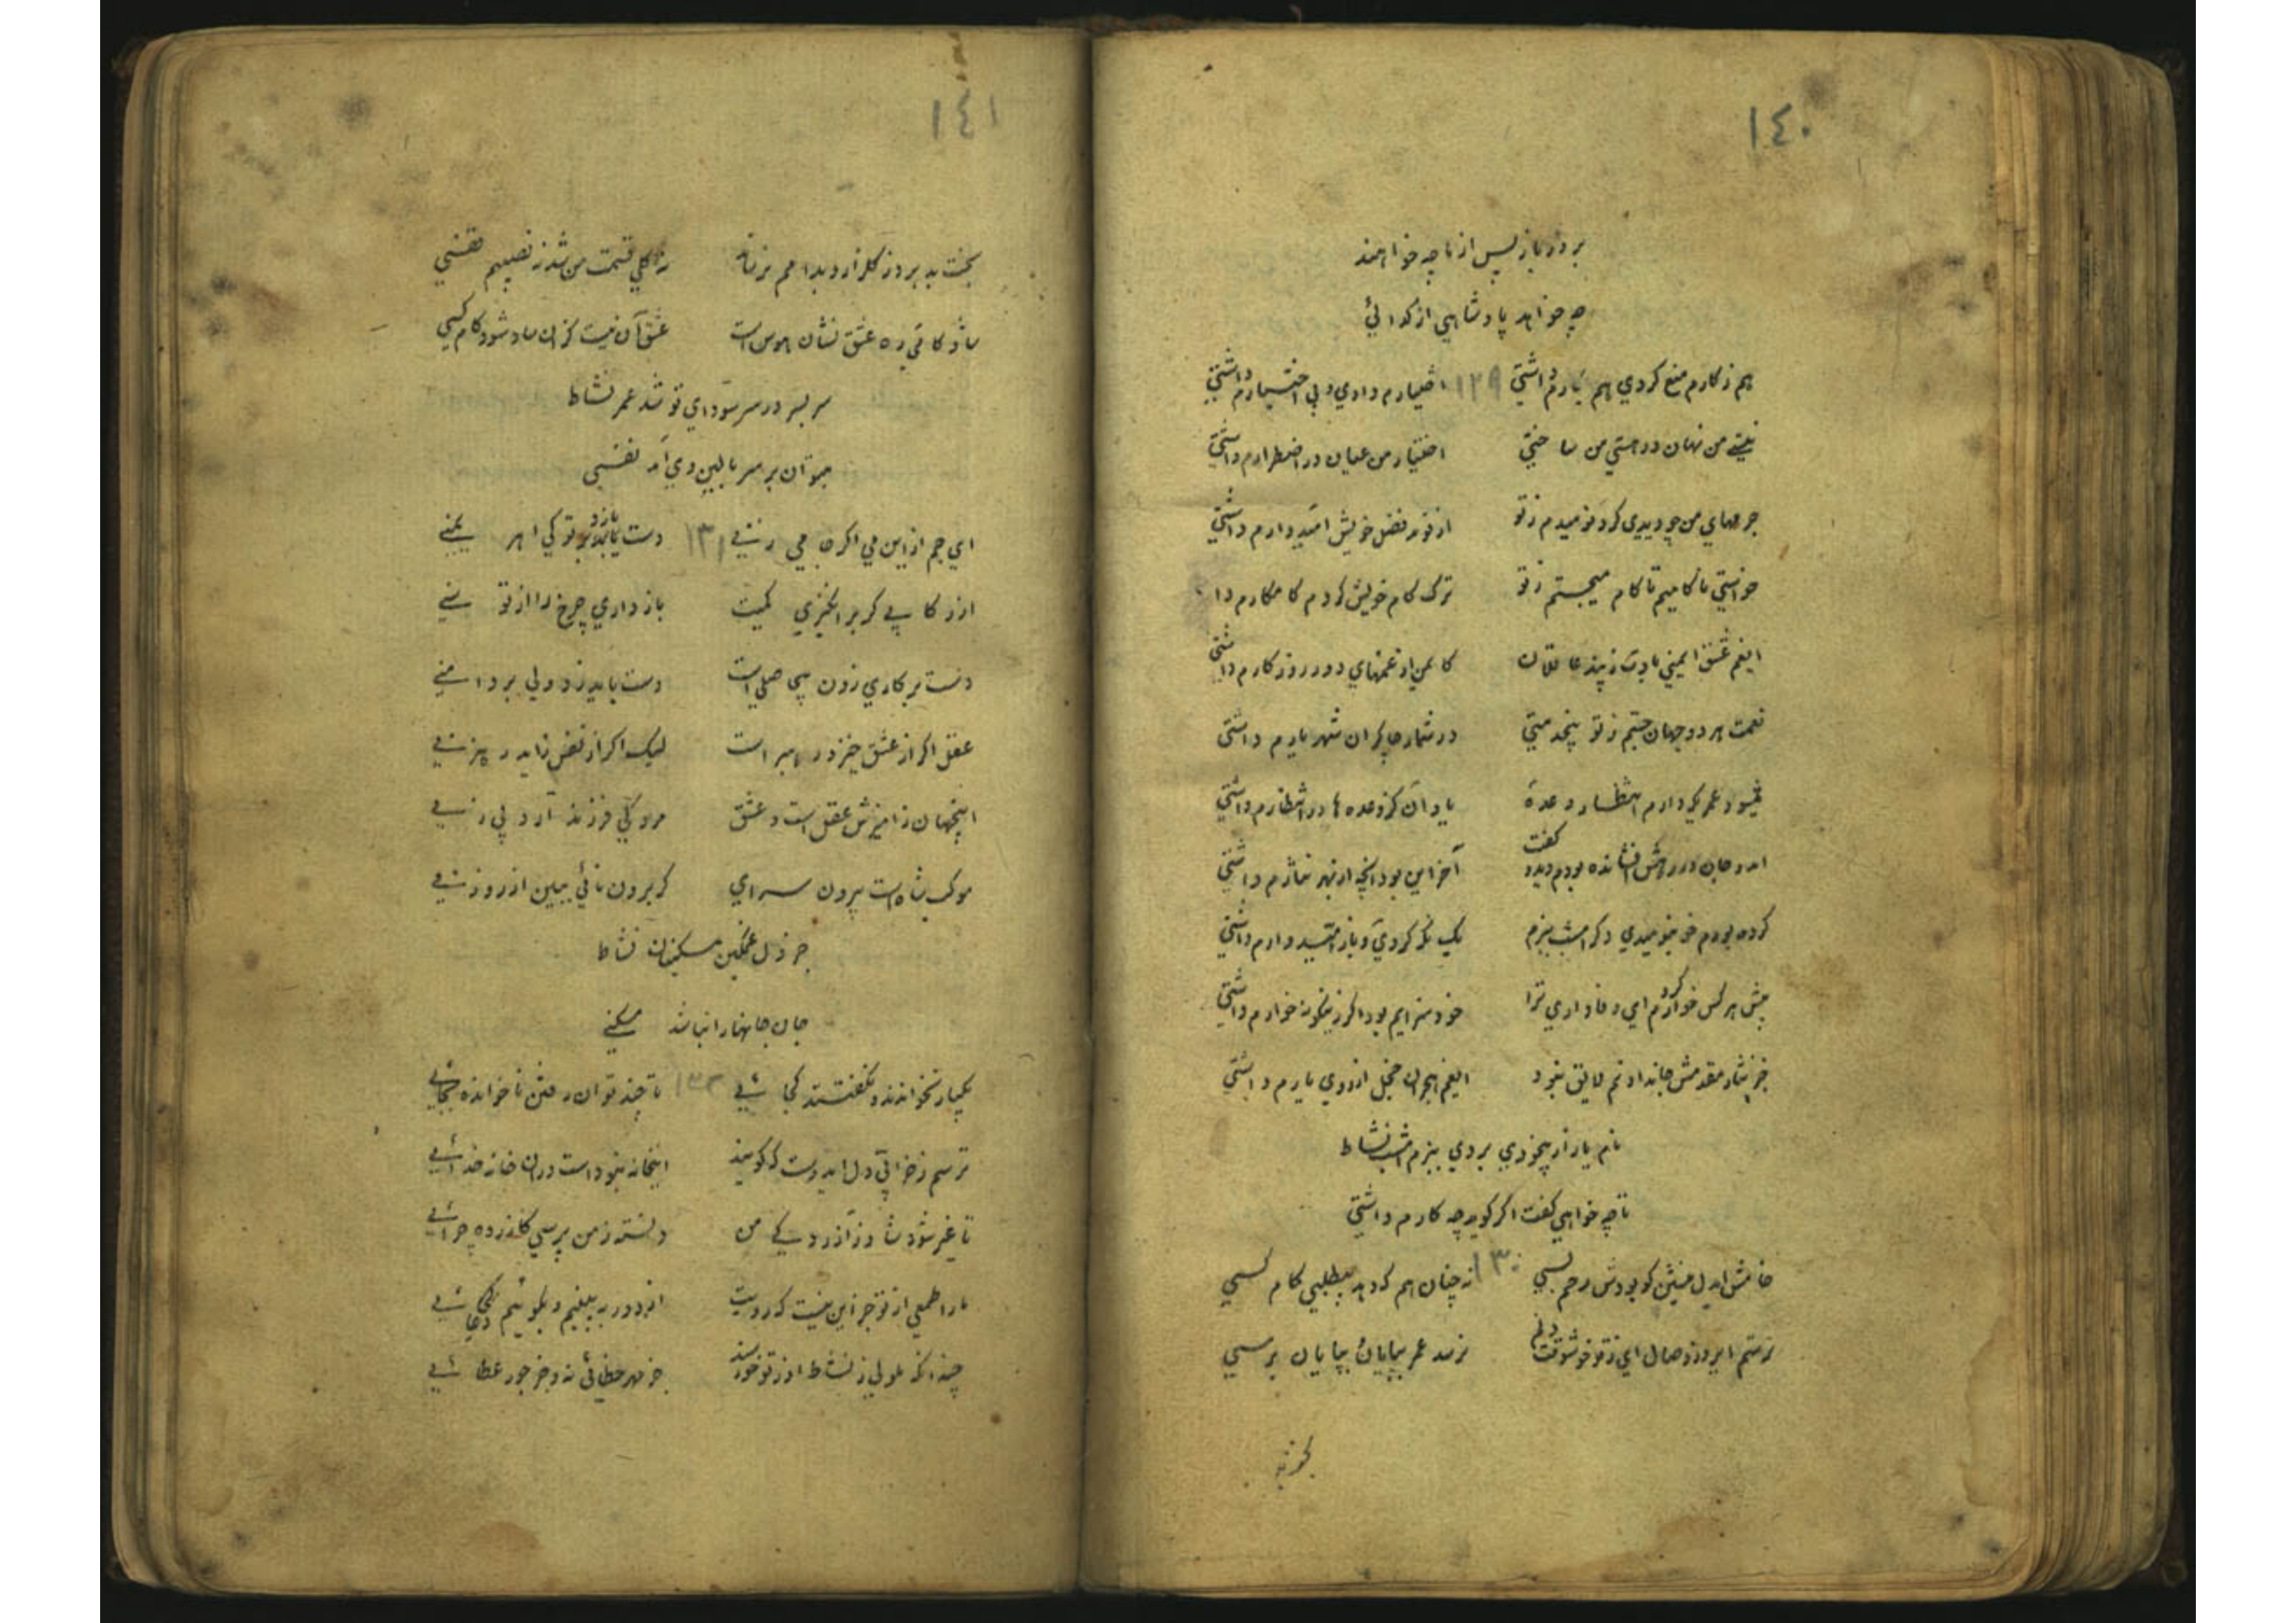 ١٤٠
بروز بازپس از ما چه خواهند
چه خواهد پادشاهی از گدائی
هم ز کارم منع کردی هم بکارم داشتی ١٢٩ اختیارم دادی و بی اختیارم داشتی
نیستی من نهان در هستی من ساختی اختیار من عیان در اضطرارم داشتی
جرمهای من چو دیدی کرد نومیدم ز تو از تو فضل خویش امیدوارم داشتی
خواستی ناکامیم تا کام میجستم ز تو ترک کام خویش کردم کامکارم دا
ایغم عشق ایمنی بادت ز پند عاقلان کایمن از غمهای دور روزگارم داشتی
نعمت هر دو جهان جستم ز تو بیخدمتی در شمار چاکران شهریارم داشتی
میشود عمریکه دارم انتظار وعدهٔ یاد آن کز وعده ها در انتظارم داشتی
آمد و جان در رهش افشانده بودم دید و گفت آخر این بود آنچه از بهر نثارم داشتی
کرده بودم خو بنومیدی دگر امشب ببزم یک نگه کردی و باز امیدوارم داشتی
پیش هر کس خوارم کرد ای وفاداری ترا خود سزایم بود اگر زینگونه خوارم داشتی
جز نثار مقدمش جاندادنم لایق نبود ایغم هجران خجل از روی یارم داشتی
نام یار از بیخودی بردی ببزم امشب نشاط
تا چه خواهی گفت اگر گوید چه کارم داشتی
خامش ایدل منشین کو بودش رحم بسی ١٣٠ نه چنان هم که دهد بیطلبی کام کسی
نرسد عمر بپایان بپایان برسی
١٤١
بخت بد بروز گلزار و بدامم نرساند نه گلی قسمت من شد ز نصیبم قفسی
شادکامی به ره عشق نشان هوس است عشق آن نیست کزان شاد شود کام کسی
سر بسر در سر سودای تو شد عمر نشاط
میتوان بر سر بالین وی آمد نفسی
ای جم از این می اگر جامی زنی ١٣١ دست یابد بر تو کی اهریمنی
از رکابی گر برانگیزی کمیت باز داری چرخ را از توسنی
دست بر کاری زدن بیحاصلی است دست باید زد ولی بر دامنی
عقل اگر از عشق خیزد رهبر است لیک اگر از نفس زاید رهزنی
اینجهان ز آمیزش عقل است و عشق مرد کی فرزند آرد بی زنی
موکب شاه است بیرون سرای گر برون نائی ببین از روزنی
جز دل غمگین مسکینان نشاط
جان جانها را نباشد مسکنی
یکبار نخواندند و نگفتند کجائی ١٣٢ تا چند توان رفتن ناخوانده بجائی
ترسم ز خرابی دل ایدوست که گویند اینخانه نبود است در آن خانه خدائی
تا غیر شود شاد ز آزردگی من دانسته ز من پرسی کازرده چرائی
ما را طمعی از تو جز این نیست که رویت از دور ببینیم و بگوئیم دعائی
چندانکه ملولی ز نشاط او ز تو خورسند جز مهر خطائی نه و جز جور عطائی